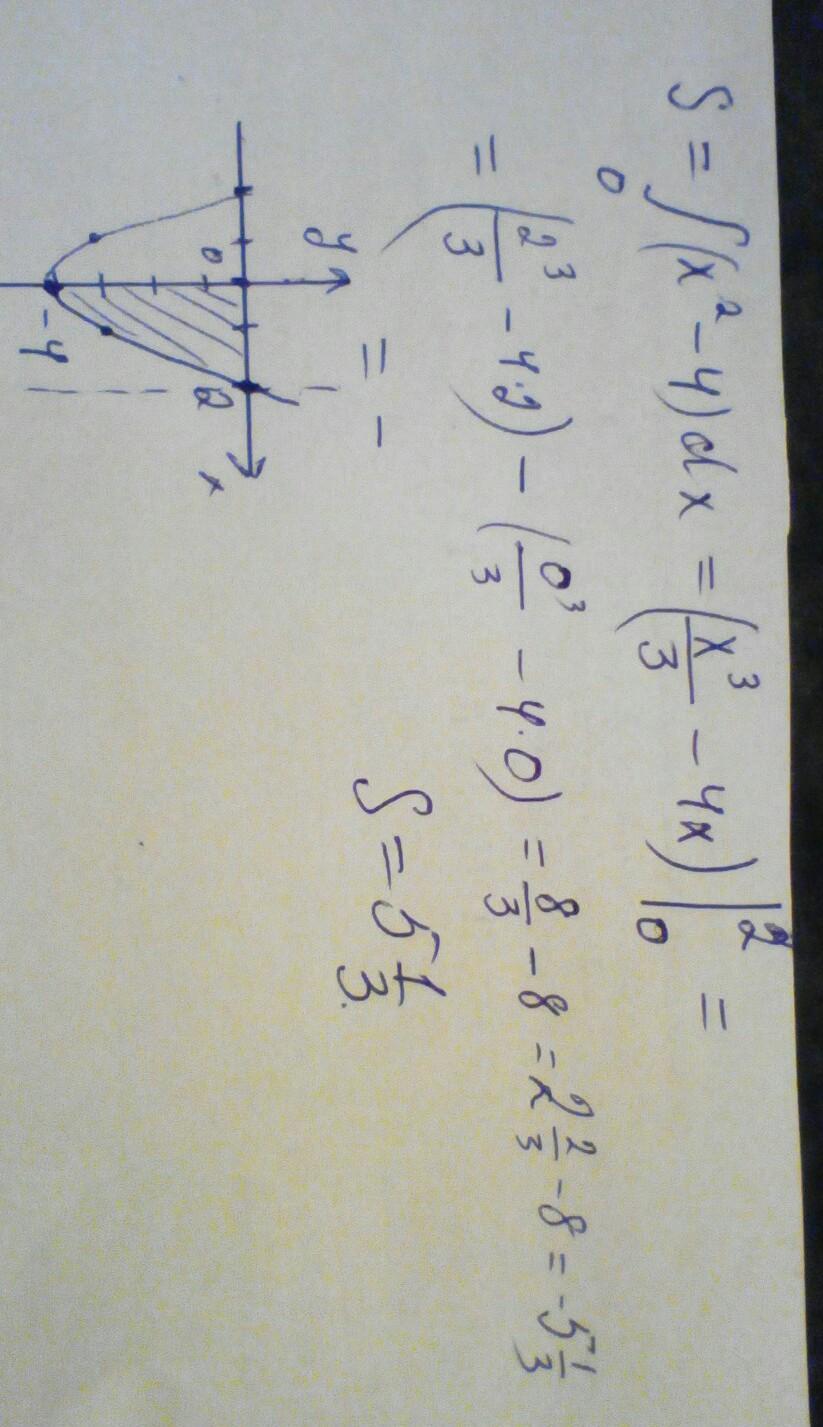 S = ∫₀ (x² - 4) dx = (x³/3 - 4x) |₀² =
= (2³/3 - 4·2) - (0³/3 - 4·0) = 8/3 - 8 = 2 2/3 - 8 = -5 1/3
= -
S = 5 1/3.
y
0
2
x
-4